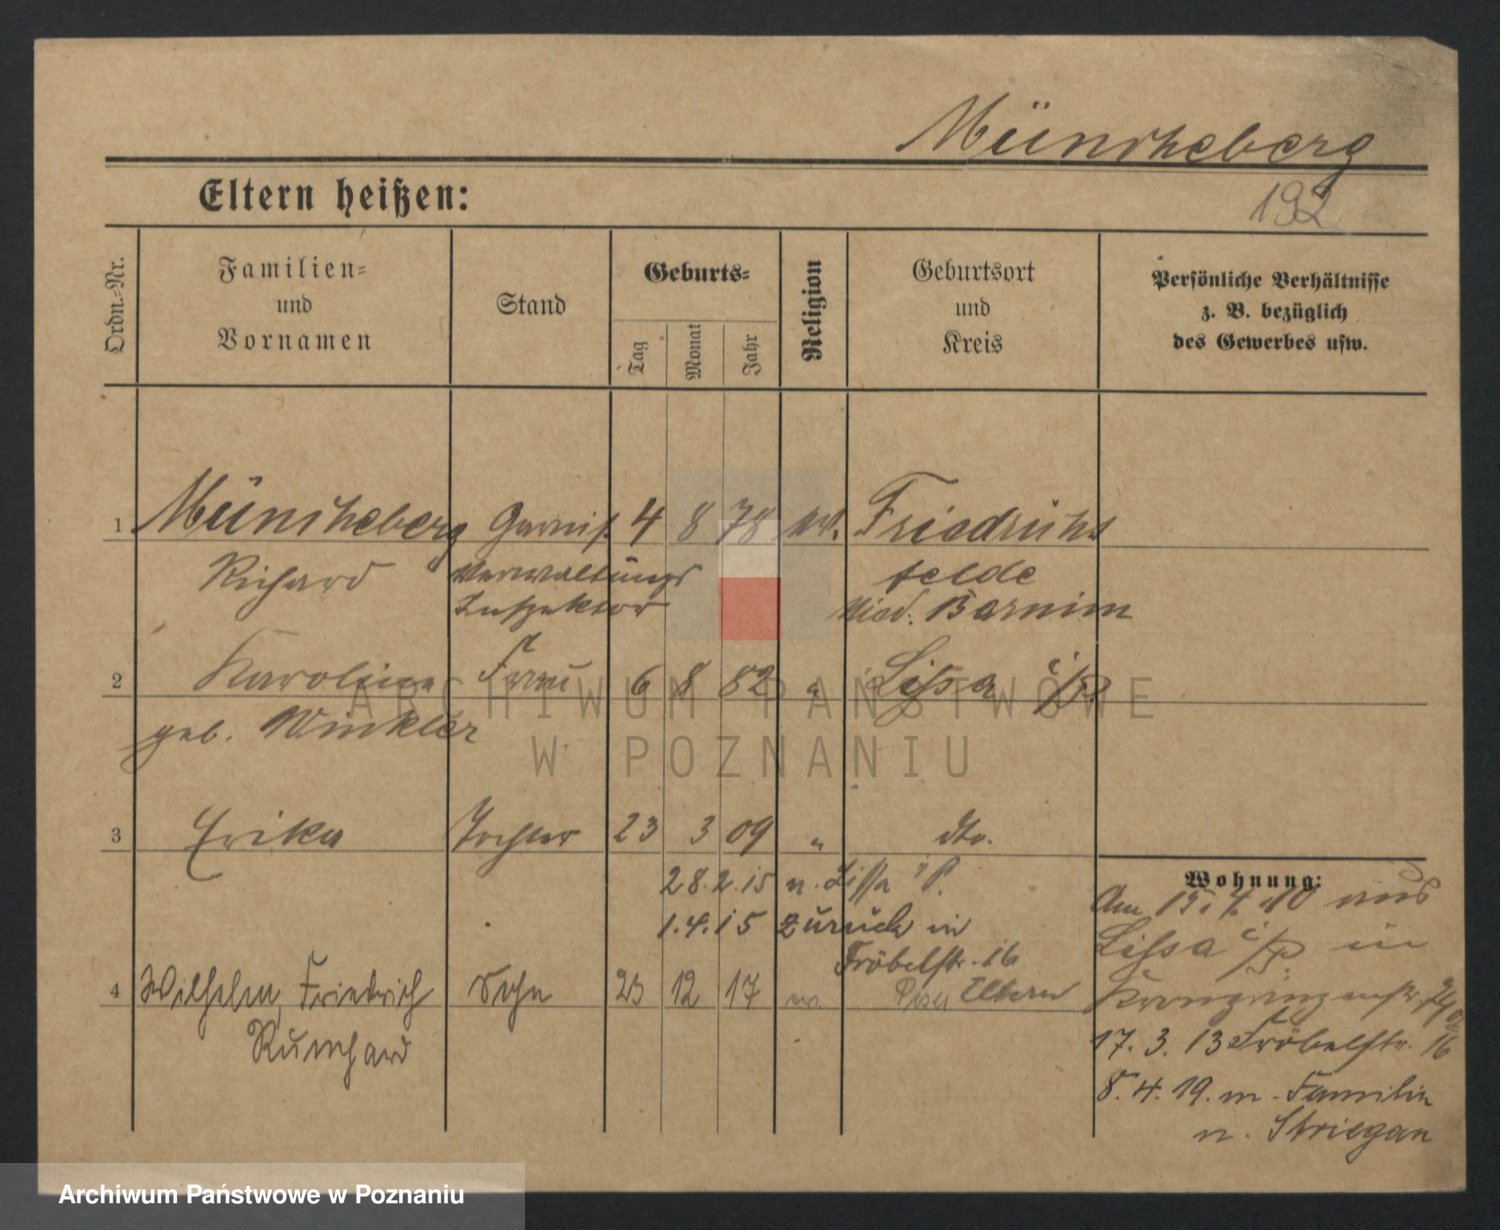 Müncheberg
192
Eltern heißen:
Ordn.-Nr.
Familien-
und
Vornamen
Stand
Geburts-
Tag
Monat
Jahr
Religion
Geburtsort
und
Kreis
Persönliche Verhältnisse
z. B. bezüglich
des Gewerbes usw.
1 Müncheberg Garnis. 4 8 78 Friedrichs
Richard Verwaltungs felde
Inspektor Nied. Barnim
2 Karoline Frau 6 8 82 " Lissa i/P
geb. Winkler
3 Erika Tochter 23 3 09 " dto.
28.2.15 n. Lissa i P.
1.4.15 zurück in
Fröbelstr. 16
Eltern
4 Wilhelm Friedrich Sohn 23 12 17 ev. Posen
Reinhard
Wohnung:
Am 15.4.10 aus
Lissa i/P. in
Kronprinzenstr.
17. 3. 13 Fröbelstr. 16
8. 4. 19. m. Familie
n. Striegau
ARCHIWUM PAŃSTWOWE
W POZNANIU
Archiwum Państwowe w Poznaniu